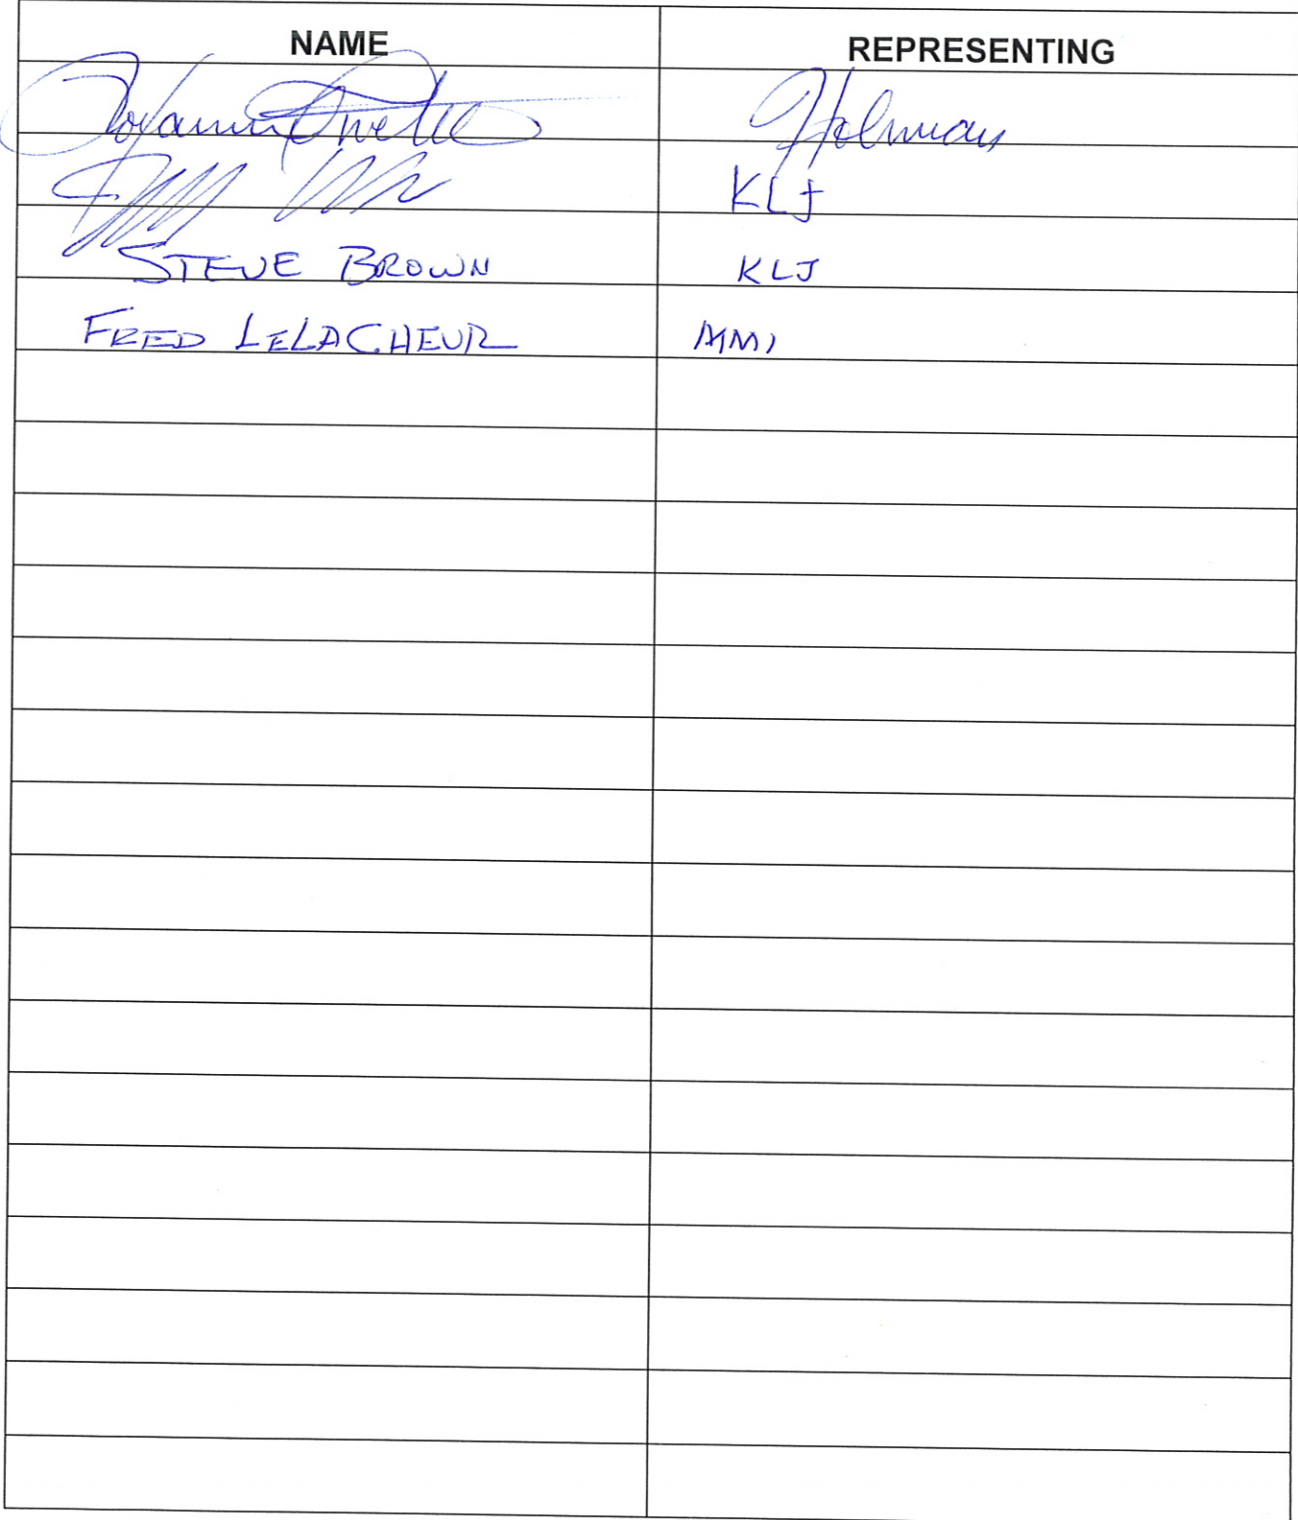 NAME REPRESENTING
Holman
KLJ
STEVE BROWN KLJ
FRED LELACHEUR AMI